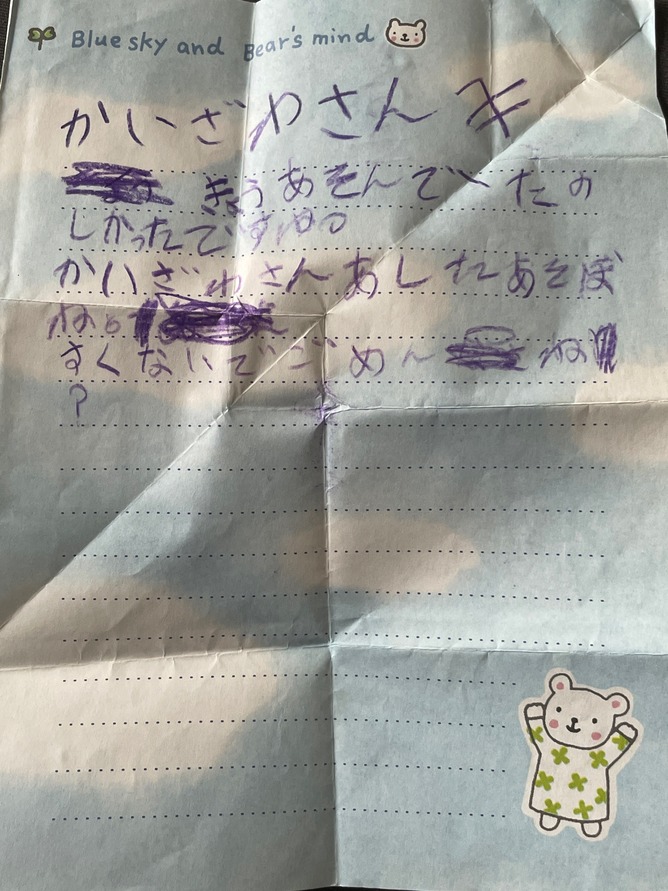 Blue sky and Bear's mind
かいざわさん
きょうあそんでいたの
しかったですね。
かいざわさんあしたあそぼ
ね。
すくないでごめんね
?